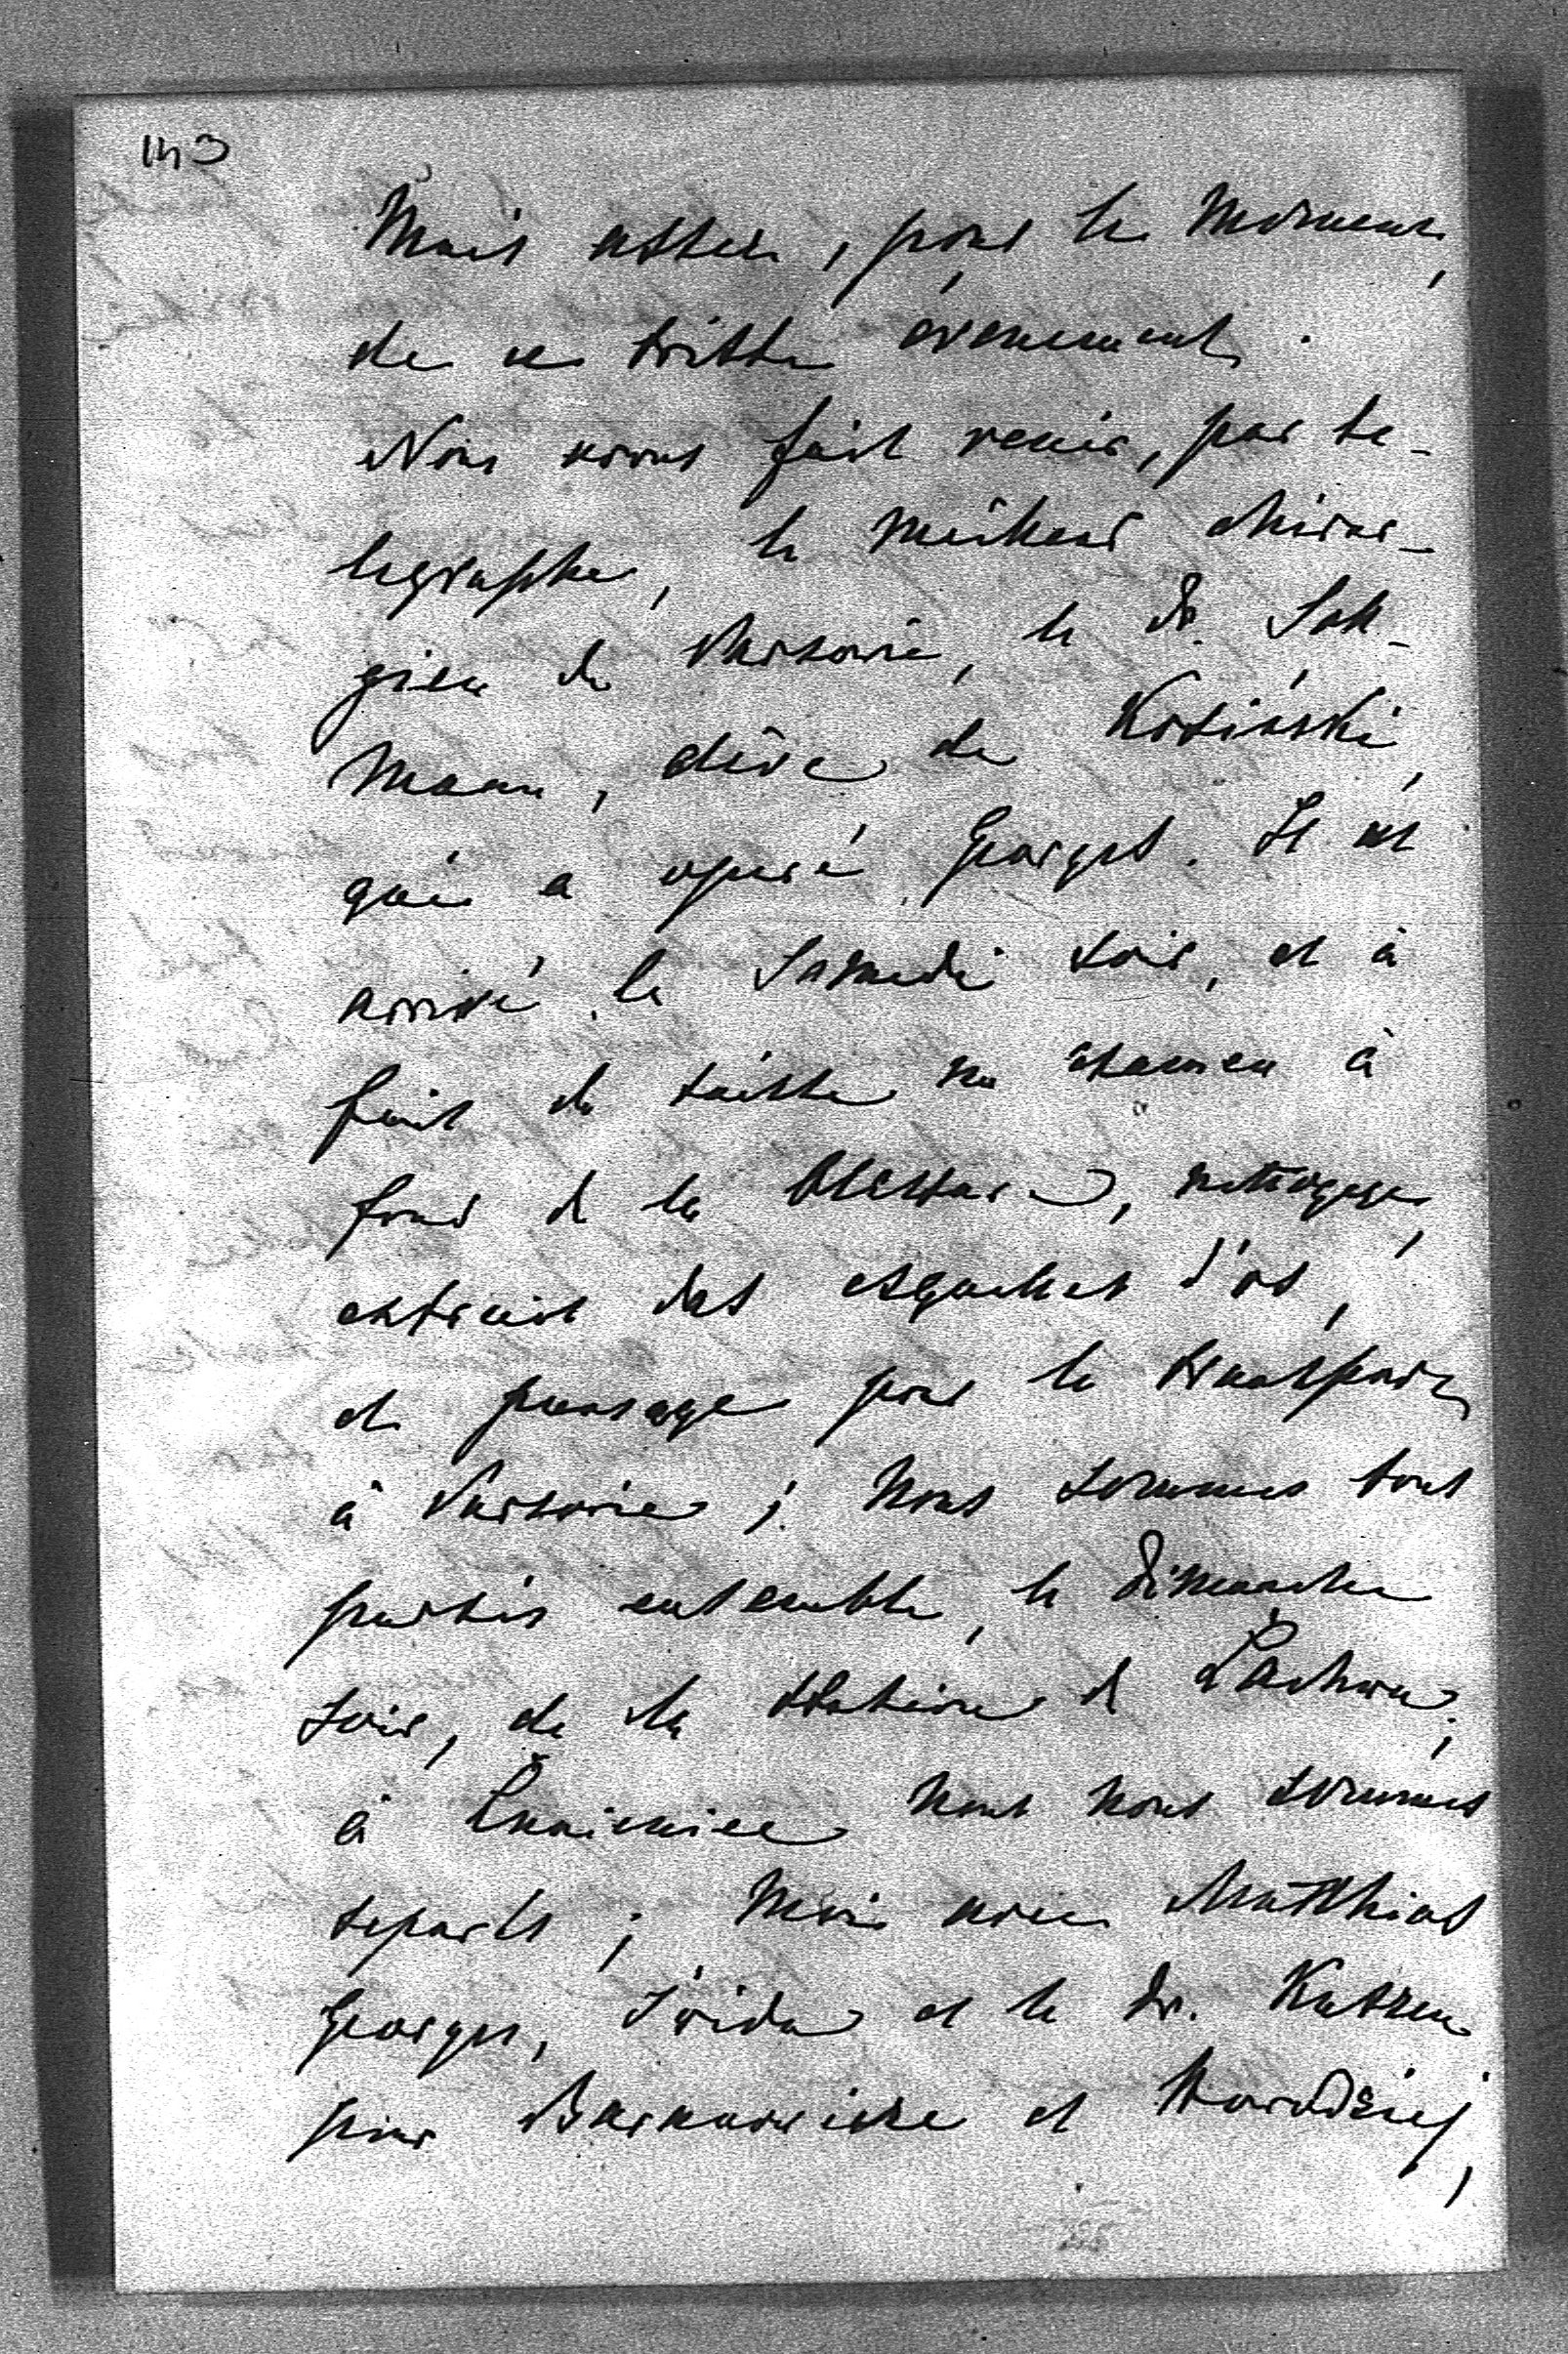 143
Mais assez, pour le moment,
de ce triste évenement.
Nous avons fait venir, par te-
legraphe, le meilleur chirur-
gien de Varsovie, le Dr. Sall-
mann, élève de Kosiński,
qui a operé Georges. Il est
arrivé le Samedi soir, et à
fait de suite un examen à
fond de la blessure, nettoyage,
extrait des esquilles d'os,
et pansage pour le transport
à Varsovie; nous sommes tous
partis ensemble, le Dimanche
soir, de la station de Lachwa;
à Luniniec nous nous sommes
separés; moi avec Matthias
Georges, Frida et le Dr.
pour Baranowicze et Horodziej,